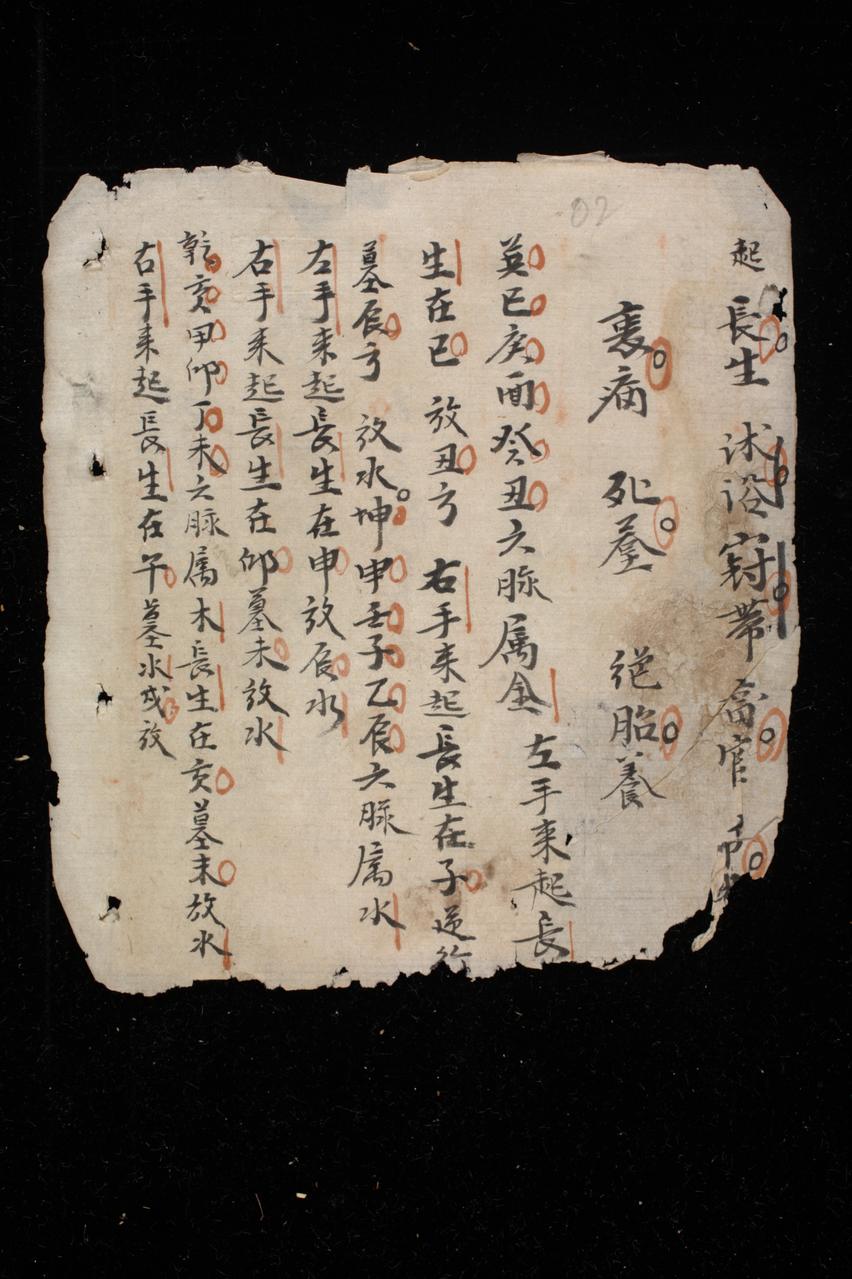 起 長生 沭浴 冠帶 臨官 帝旺
衰病 死墓 絕胎養
巽巳庚酉癸丑六脉属金 左手来起長
生在巳 放丑方 右手来起長生在子逆行
墓辰方 放水坤申壬子乙辰六脉属水
左手来起長生在申放辰水
右手来起長生在卯墓未放水
乾亥甲卯丁未六脉属木長生在亥墓未放水
右手来起長生在午墓水戌放
02